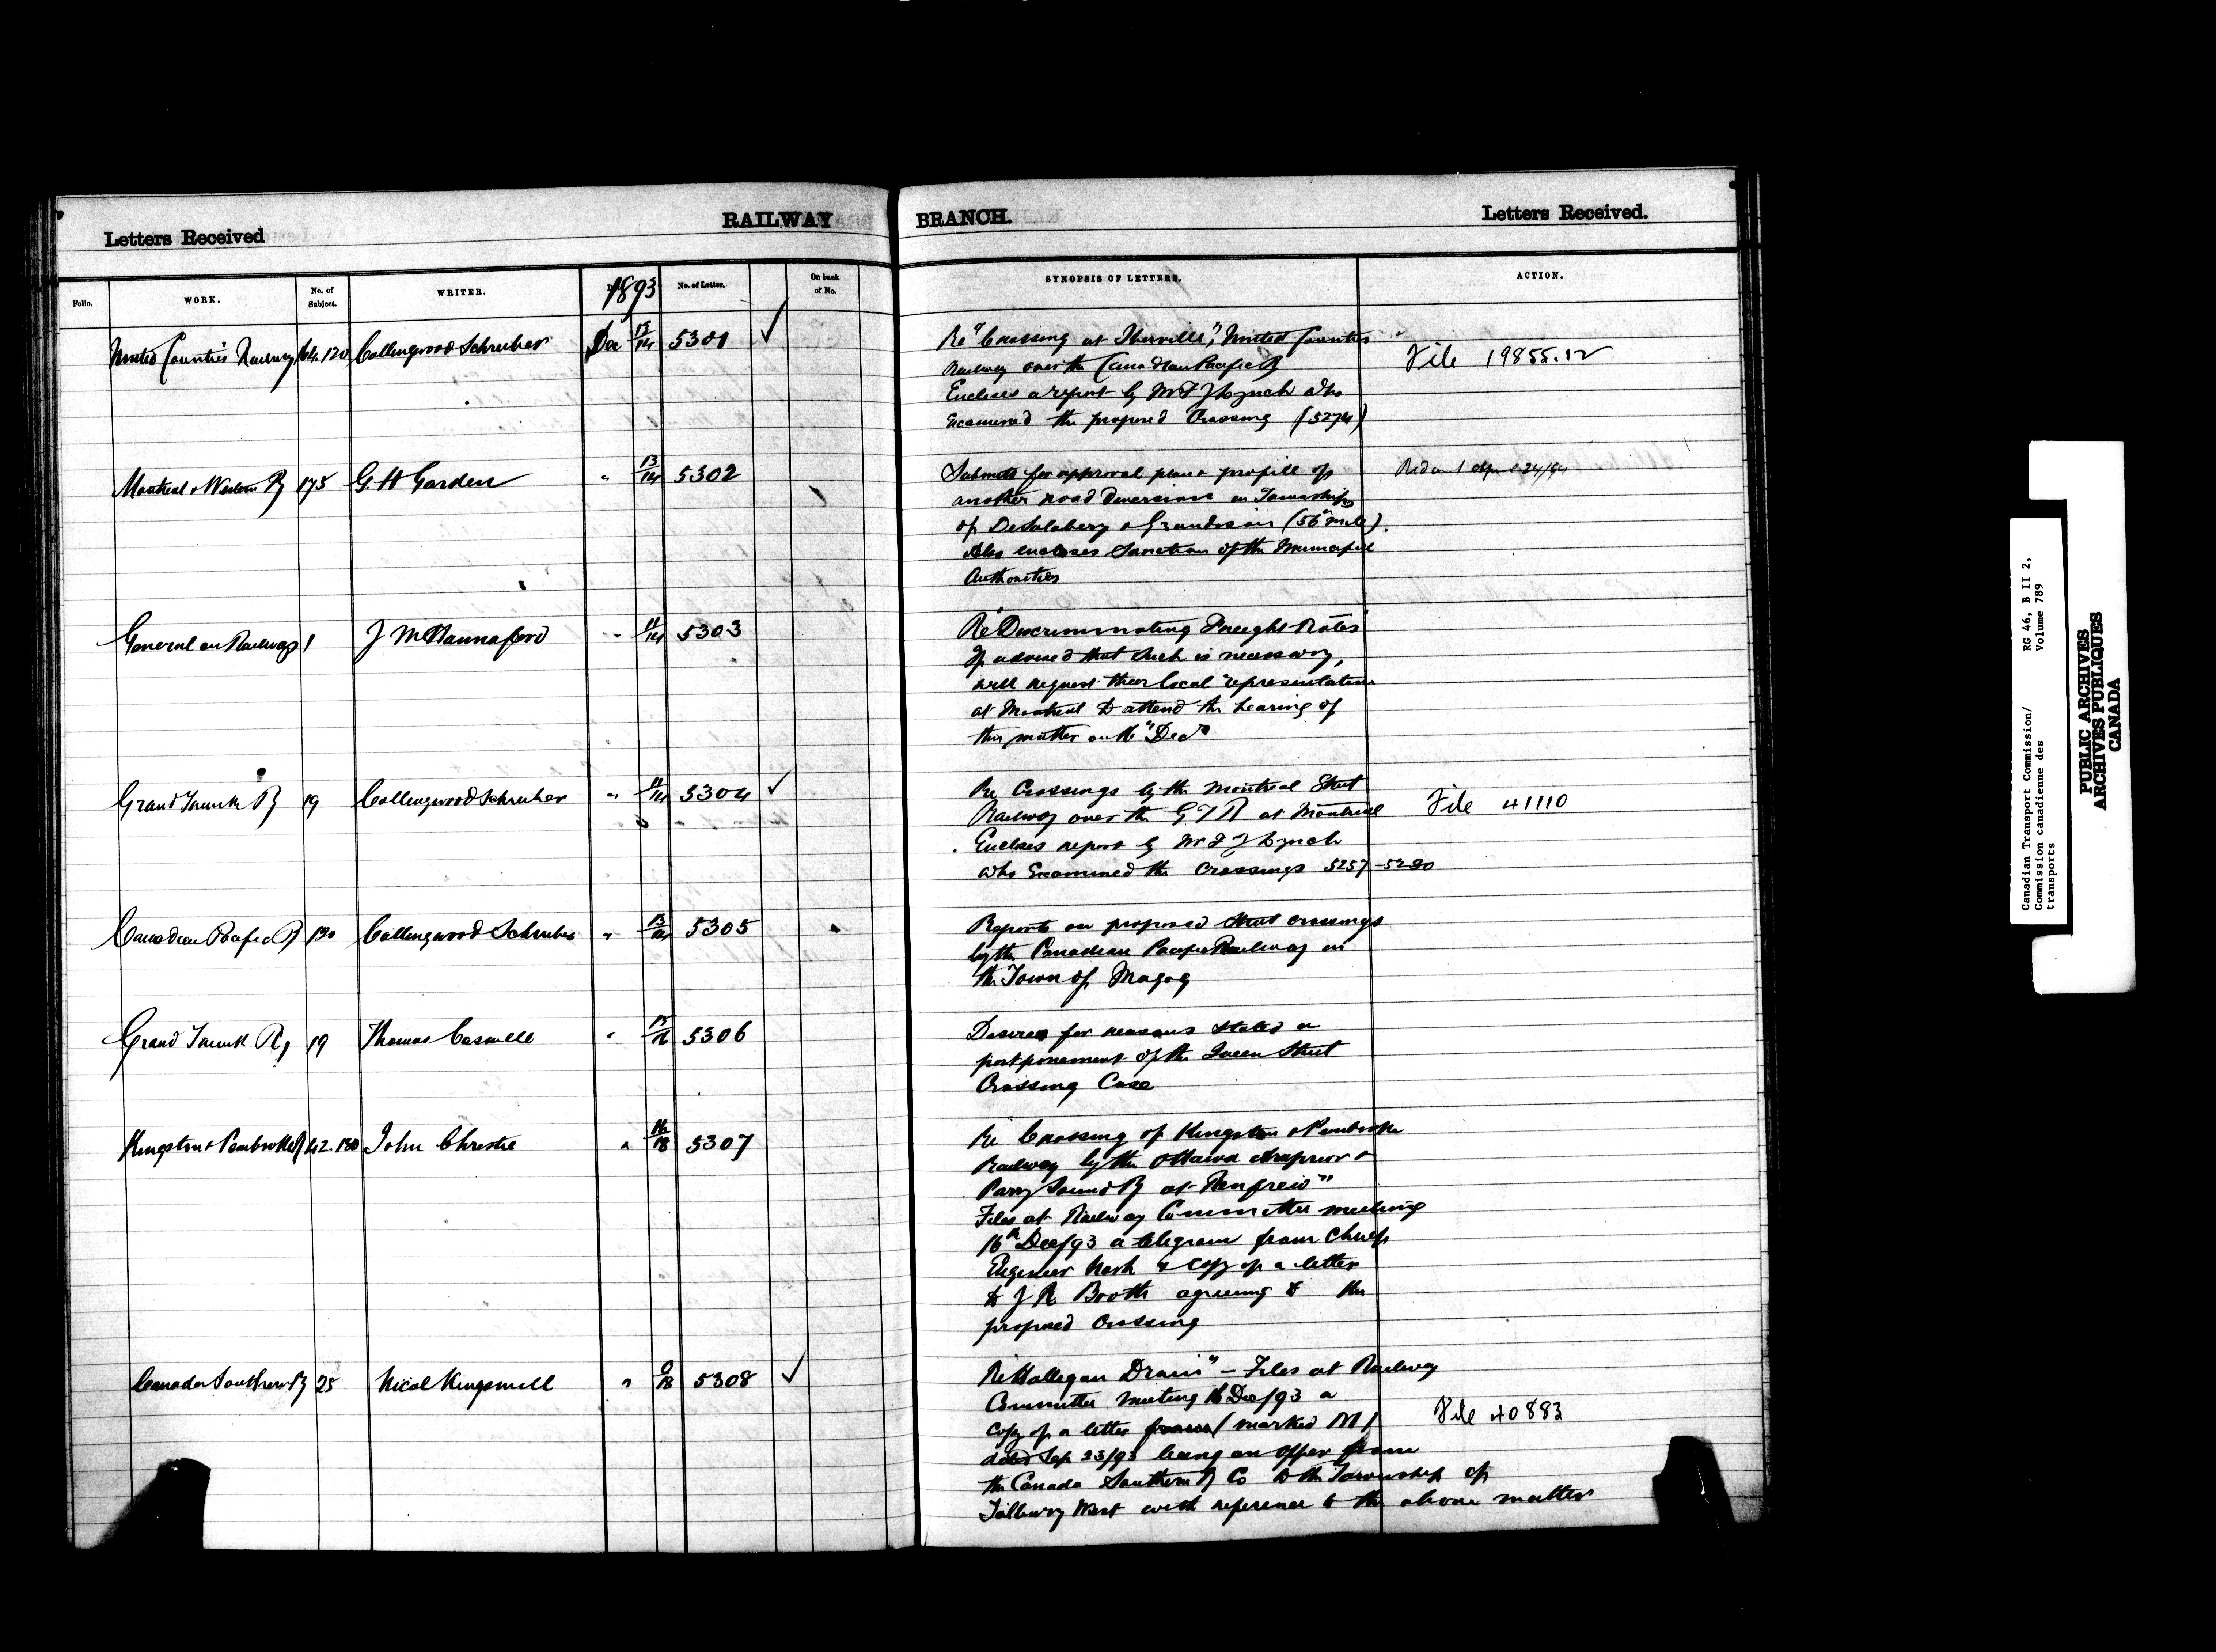 Letters Received
RAILWAY BRANCH.
Letters Received.
Folio.
WORK.
No. of Subject.
WRITER.
1893
No. of Letter.
On back of No.
SYNOPSIS OF LETTERS.
ACTION.
United Counties Railway 164.120 Collingwood Schreiber Dec 13/14 5301 ✓
Re "Crossing at Iberville", United Counties
Railway over the Canadian Pacific Ry
Encloses a report by Mr F J Lynch who
Examined the proposed Crossing (5274)
File 19855.12
Montreal & Western Ry 175 G. H Garden " 13/14 5302
Submits for approval plan & profile of
another road diversion in Townships
of DeSalabery & Grandison (56th mile).
Also encloses Sanction of the Municipal
Authorities
April 24/94
General on Railways 1 J M Hannaford " 11/14 5303
Re "Discriminating Freight Rates"
If advised that such is necessary,
will request their local representative
at Montreal to attend the hearing of
this matter on 16th Dec
Grand Trunk Ry 19 Collingwood Schreiber " 11/14 5304 ✓
Re Crossings by the Montreal Street
Railway over the G.T.R at Montreal
Encloses report by Mr F J Lynch
who Examined the Crossings 5257-5280
File 41110
Canadian Pacific Ry 130 Collingwood Schreiber " 13/14 5305
Reports on proposed Street crossings
by the Canadian Pacific Railway in
the Town of Magog
Grand Trunk Ry 19 Thomas Caswell " 15/16 5306
Desires for reasons stated a
postponement of the Queen Street
Crossing Case
Kingston & Pembroke Ry 42.180 John Christie " 16/18 5307
Re "Crossing of Kingston & Pembroke
Railway by the Ottawa Arnprior &
Parry Sound Ry at Renfrew"
Files at Railway Committee meeting
16th Dec/93 a telegram from Chief
Engineer Nash & copy of a letter
to J R Booth agreeing to the
proposed Crossing
Canada Southern Ry 25 Nicol Kingsmill " 0/18 5308 ✓
Re "Hallegan Drain" - Files at Railway
Committee meeting 16 Dec/93 a
copy of a letter (marked M)
dated Sep 23/93 being an offer from
the Canada Southern Ry Co to the Township of
Tilbury West with reference to the above matter
File 40883
Canadian Transport Commission/
Commission canadienne des
transports
RG 46, B II 2,
Volume 789
PUBLIC ARCHIVES
ARCHIVES PUBLIQUES
CANADA